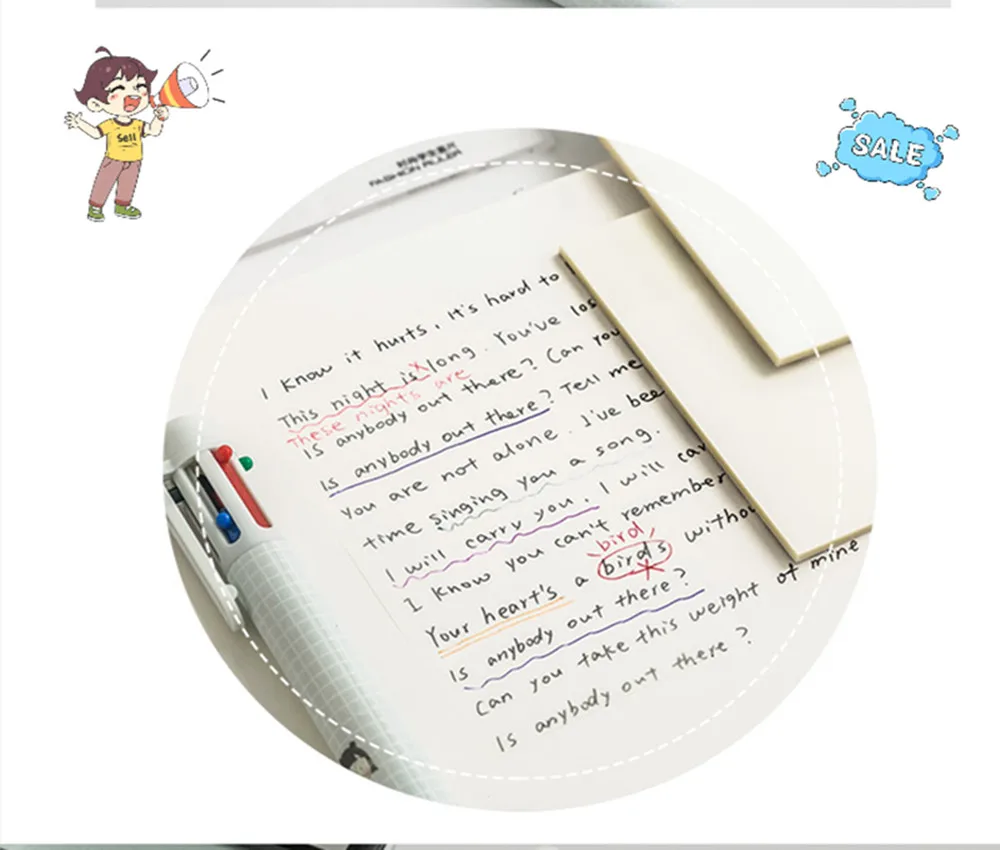 Sell
SALE
时尚学生套尺
FASHION RULER
I know it hurts, It's hard to
This night is x long. You've los
These nights are
Is anybody out there? Can you
Is anybody out there? Tell me
You are not alone. I've bee
time singing you a song.
I will carry you. I will car
I know you can't remember
bird
Your heart's a birds withou
Is anybody out there?
Can you take this weight of mine
Is anybody out there?